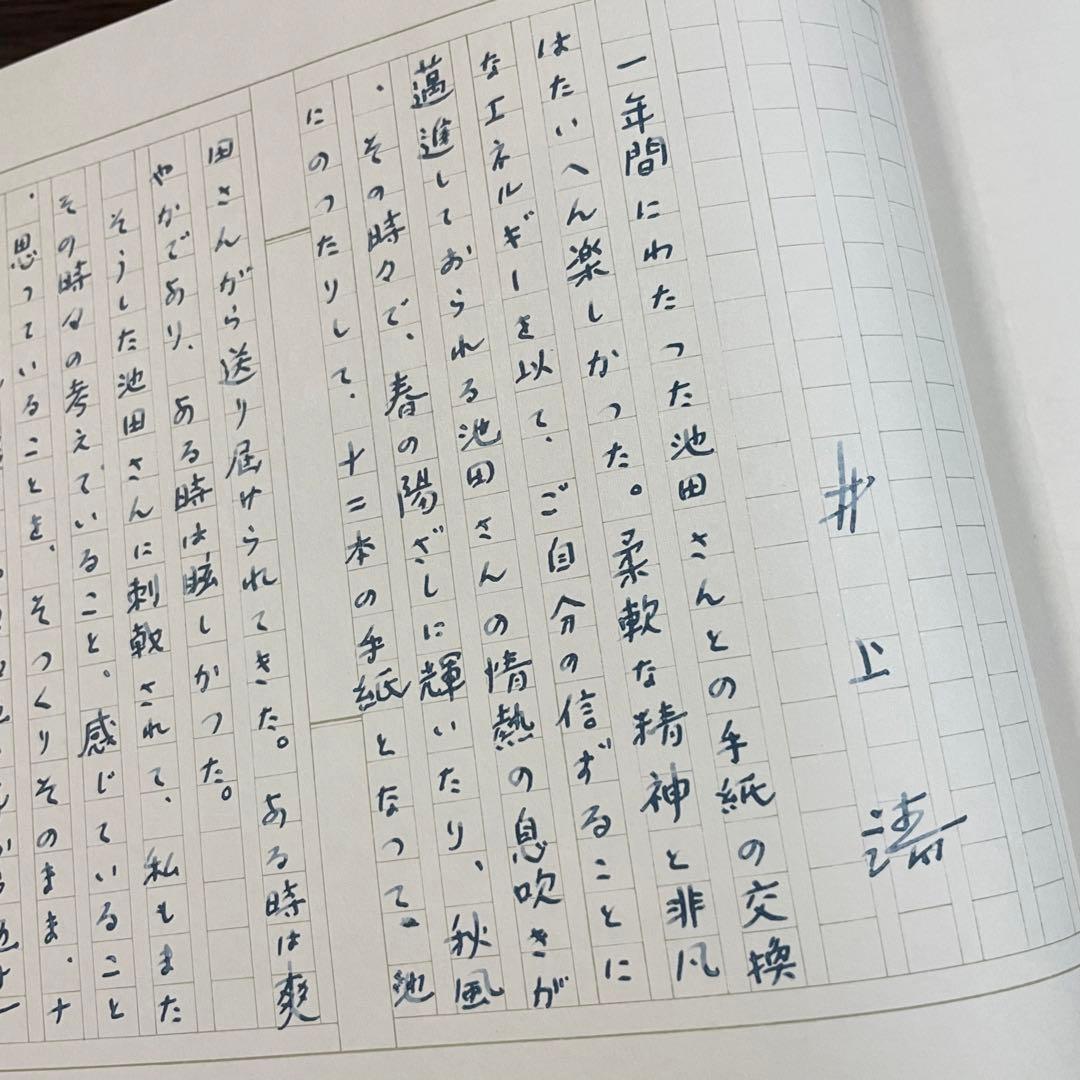 井上靖
一年間にわたった池田さんとの手紙の交換
はたいへん楽しかった。柔軟な精神と非凡
なエネルギーを以て、ご自分の信ずることに
邁進しておられる池田さんの情熱の息吹きが
、その時々で、春の陽ざしに輝いたり、秋風
にのったりして、十二本の手紙となって、池
田さんから送り届けられてきた。ある時は爽
やかであり、ある時は眩しかった。
そうした池田さんに刺戟されて、私もまた
その時々の考えていること、感じていること
、思っていることを、そっくりそのまま、十